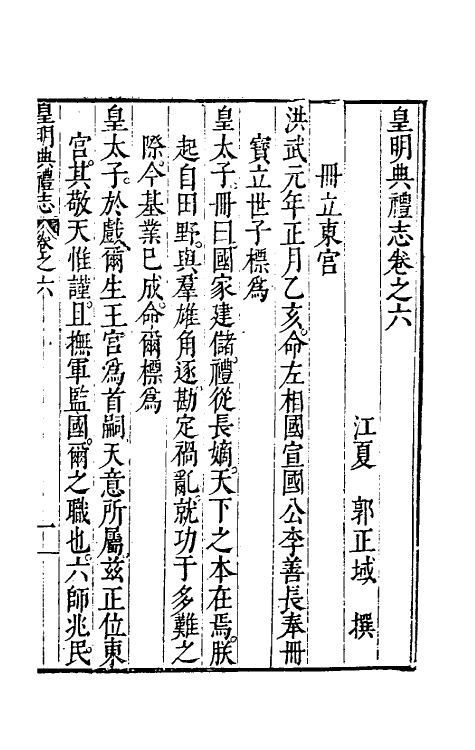 皇明典禮志卷之六
江夏　郭正域　撰
冊立東宮
洪武元年正月乙亥。命左相國宣國公李善長奉冊
寶立世子標爲
皇太子。冊曰。國家建儲。禮從長嫡。天下之本在焉。朕
起自田野。與羣雄角逐。勘定禍亂。就功于多難之
際。今基業已成。命爾標爲
皇太子。於戲。爾生王宮。爲首嗣。天意所屬。茲正位東
宮。其敬天惟謹。且撫軍監國。爾之職也。六師兆民。
皇明典禮志　卷之六　一